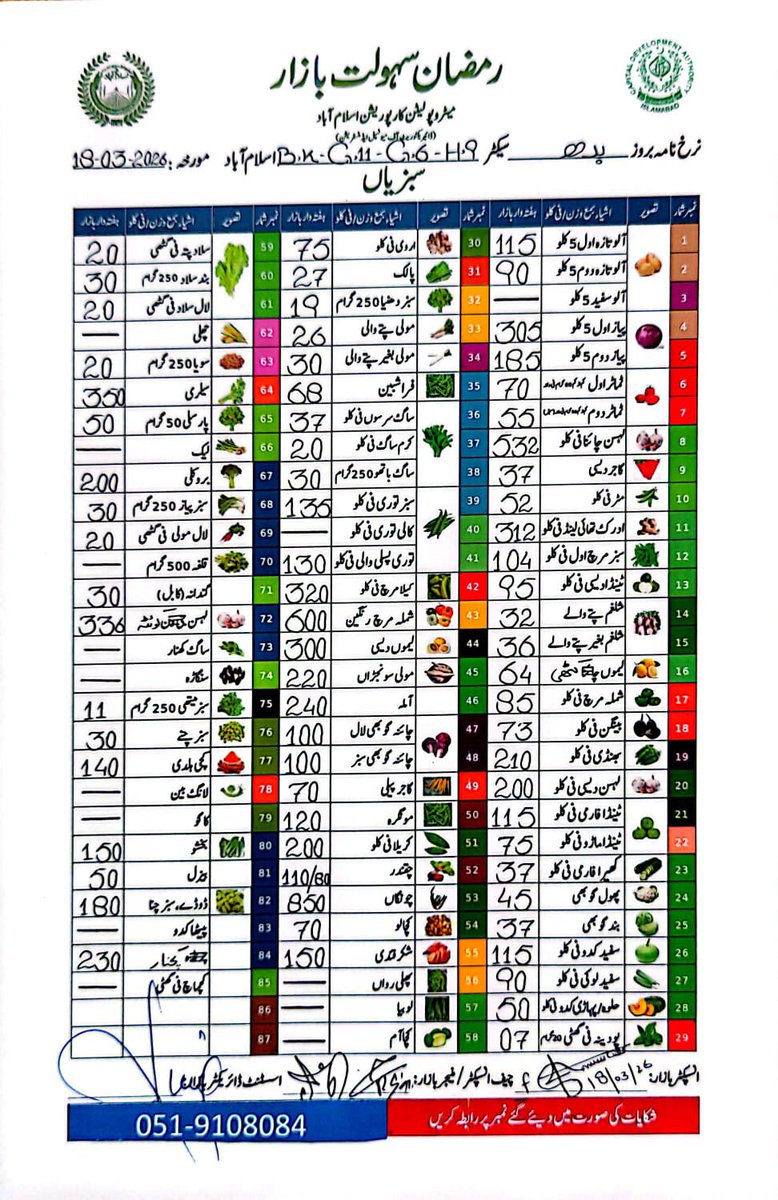 رمضان سہولت بازار
میٹروپولیٹن کارپوریشن اسلام آباد
CAPITAL DEVELOPMENT AUTHORITY
ISLAMABAD
نرخ نامہ بروز بدھ سیکٹر B.K-G.11-G.6-H.9 اسلام آباد مورخہ: 18-03-2026
سبزیاں
نمبر شمار تصویر اشیاء بمع وزن/فی کلو ہفتہ وار بازار نمبر شمار تصویر اشیاء بمع وزن/فی کلو ہفتہ وار بازار نمبر شمار تصویر اشیاء بمع وزن/فی کلو ہفتہ وار بازار
1 آلو تازہ اول 5 کلو 115 30 اروی فی کلو 75 59 سلاد پتہ فی گٹھی 20
2 آلو تازہ دوم 5 کلو 90 31 پالک 27 60 بند سلاد 250 گرام 30
3 آلو سفید 5 کلو — 32 سبز دھنیا 250 گرام 19 61 لال سلاد فی گٹھی 20
4 پیاز اول 5 کلو 305 33 مولی پتے والی 26 62 چھلی —
5 پیاز دوم 5 کلو 185 34 مولی بغیر پتے والی 30 63 سویا 250 گرام 20
6 ٹماٹر اول 70 35 فراشبین 68 64 سیلری 350
7 ٹماٹر دوم 55 36 ساگ سرسوں فی کلو 37 65 پارسلی 50 گرام 50
8 لہسن چائنا فی کلو 532 37 کرم ساگ فی کلو 20 66 لیک —
9 گاجر دیسی 37 38 ساگ باتھو 250 گرام 30 67 بروکلی 200
10 مٹر فی کلو 52 39 سبز توری فی کلو 135 68 سبز پیاز 250 گرام 30
11 ادرک تھائی لینڈ فی کلو 312 40 کالی توری فی کلو — 69 لال مولی فی گٹھی 20
12 سبز مرچ اول فی کلو 104 41 توری پسلی والی فی کلو 130 70 قلفہ 500 گرام —
13 ٹینڈا دیسی فی کلو 95 42 کیلا مرچ فی کلو 320 71 گندانہ (کابل) 30
14 شلغم پتے والے 32 43 شملہ مرچ رنگین 600 72 لہسن 336
15 شلغم بغیر پتے والے 36 44 لیموں دیسی 300 73 ساگ کھٹار —
16 لیموں چائنہ 64 45 مولی سونجڑاں 220 74 سنگاڑہ —
17 شملہ مرچ فی کلو 85 46 آملہ 240 75 سبز میتھی 250 گرام 11
18 بینگن فی کلو 73 47 چائنہ گوبھی لال 100 76 سبز چنے 30
19 بھنڈی فی کلو 210 48 چائنہ گوبھی سبز 100 77 کچی ہلدی 140
20 لہسن دیسی فی کلو 200 49 گاجر پیلی 70 78 لانگ بین —
21 ٹینڈا فاری فی کلو 115 50 مونگرہ 120 79 کاہو —
22 ٹینڈا ماڑو فی کلو 75 51 کریلا فی کلو 200 80 بتھو 150
23 کھیرا فاری فی کلو 37 52 چقندر 110/80 81 فنل 50
24 پھول گوبھی 45 53 چونگاں 850 82 ڈوڈے، سبز چنا 180
25 بند گوبھی 37 54 کچالو 70 83 پیٹھا کدو —
26 سفید کدو فی کلو 115 55 شکرقندی 150 84 کچنار 230
27 سفید لوکی فی کلو 90 56 پھلی رواں — 85 کھماچ فی گٹھی —
28 حلوہ/پہاڑی کدو فی کلو 50 57 لوبیا — 86
29 پودینہ فی گٹھی 20 گرام 07 58 کچا آم — 87
انسپکٹر بازار: 18/03/26 چیف انسپکٹر/منیجر بازار: اسسٹنٹ ڈائریکٹر بازار:
شکایات کی صورت میں دیئے گئے نمبر پر رابطہ کریں
051-9108084